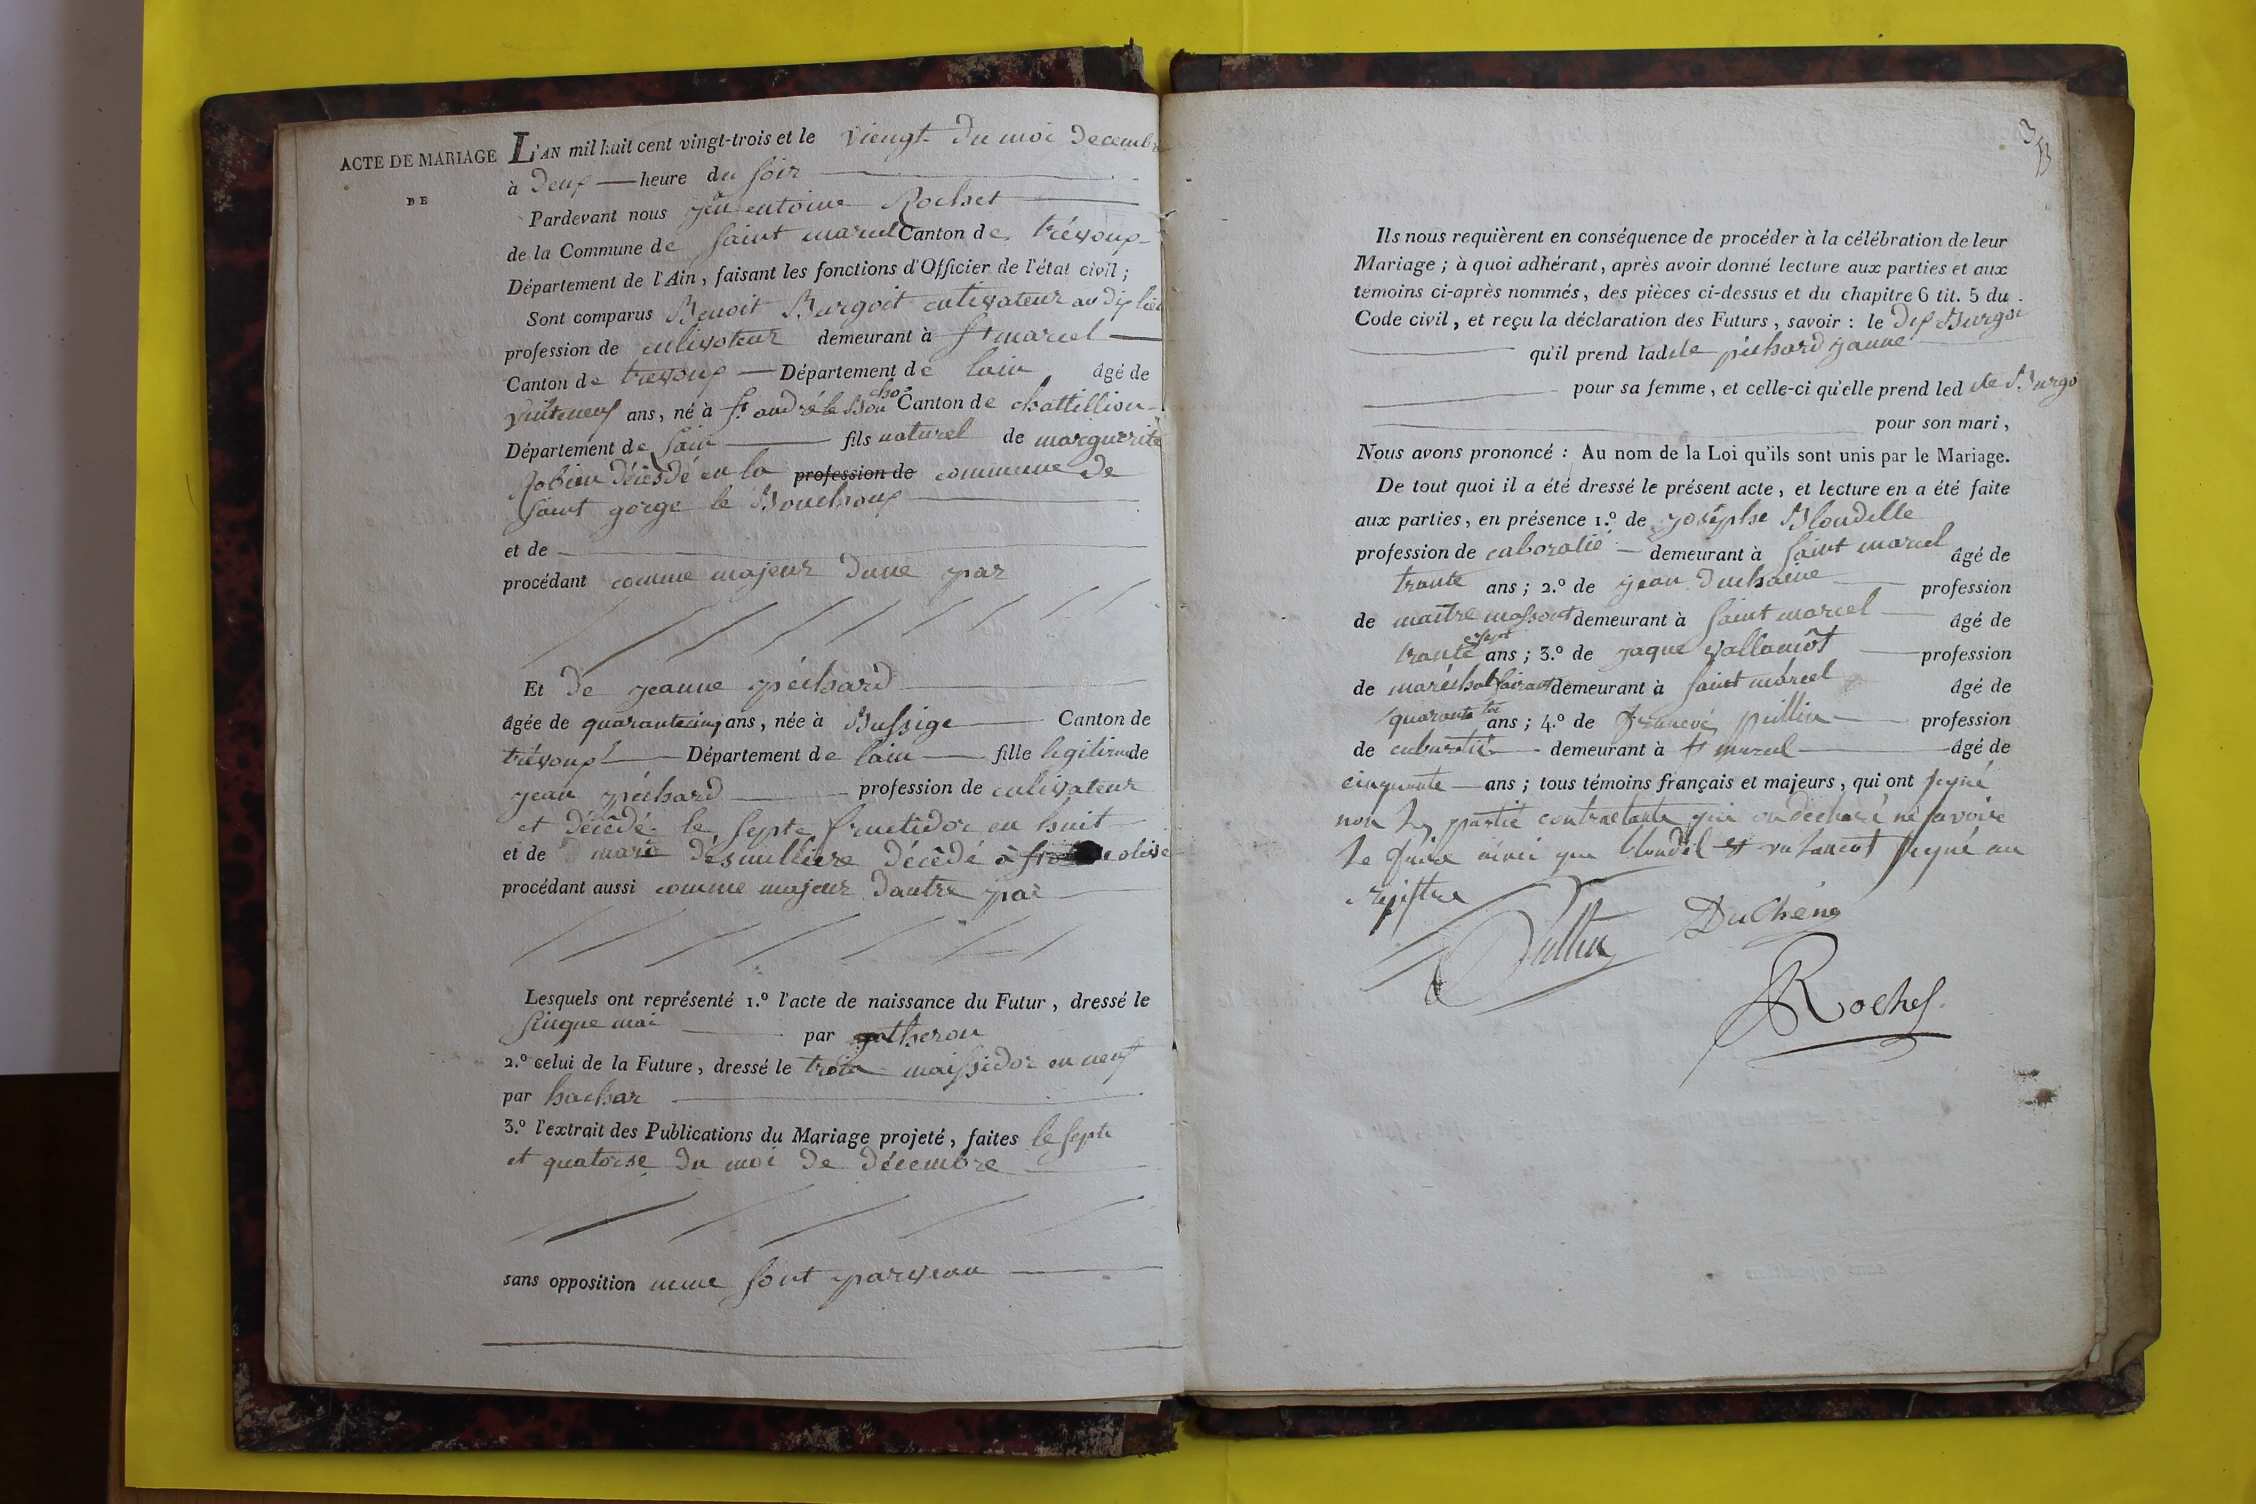 ACTE DE MARIAGE
DE
L'AN mil huit cent vingt-trois et le viengt du moi decembre
à deux heure du soir
Pardevant nous jean entoine Rochet
de la Commune de saint marcel Canton de trévoux
Département de l'Ain, faisant les fonctions d'Officier de l'état civil;
Sont comparus Benoit Burgoit cultivateur au dix lieu
profession de cultivateur demeurant à st marcel
Canton de trevoux Département de lain âgé de
vinteneuf ans, né à st andré le Bouchox Canton de chattillion
Département de lain fils naturel de marguerite
Robin décédé en la profession de commune de
saint gorge le Bouchoux
et de
procédant comme majeur dune par
Et de jeanne péchard
âgée de quarantecinq ans, née à Bussige Canton de
trévoux Département de lain fille legitime de
jean péchard profession de cultivateur
et décédé le septe fructidor en huit
et de marie désmullière décédé à
procédant aussi comme majeur dautre par
Lesquels ont représenté 1.º l'acte de naissance du Futur, dressé le
sinque mai par gatheron
2.º celui de la Future, dressé le trois maissidor en neuf
par hachar
3.º l'extrait des Publications du Mariage projeté, faites le septe
et quatorse du moi de décembre
sans opposition nune sont parvenu
Ils nous requièrent en conséquence de procéder à la célébration de leur
Mariage; à quoi adhérant, après avoir donné lecture aux parties et aux
témoins ci-après nommés, des pièces ci-dessus et du chapitre 6 tit. 5 du
Code civil, et reçu la déclaration des Futurs, savoir: le dix Burgoi
qu'il prend ladite péchard jeanne
pour sa femme, et celle-ci qu'elle prend led ite Burgo
pour son mari,
Nous avons prononcé: Au nom de la Loi qu'ils sont unis par le Mariage.
De tout quoi il a été dressé le présent acte, et lecture en a été faite
aux parties, en présence 1.º de joséphe Blondelle
profession de caboratié demeurant à saint marcel âgé de
trante ans; 2.º de jean duchaine profession
de maitre massont demeurant à saint marcel âgé de
trante esept ans; 3.º de jaque vallansôt profession
de maréchal fairant demeurant à saint marcel âgé de
quarante ans; 4.º de francoi pullin profession
de cabaratié demeurant à st marcel âgé de
cinquante ans; tous témoins français et majeurs, qui ont segné
non les partie contractante qui on décharé ne savoire
le faire ainci que blondel et valansot segné au
rejistre
Pullin
DuChêne
Rochet